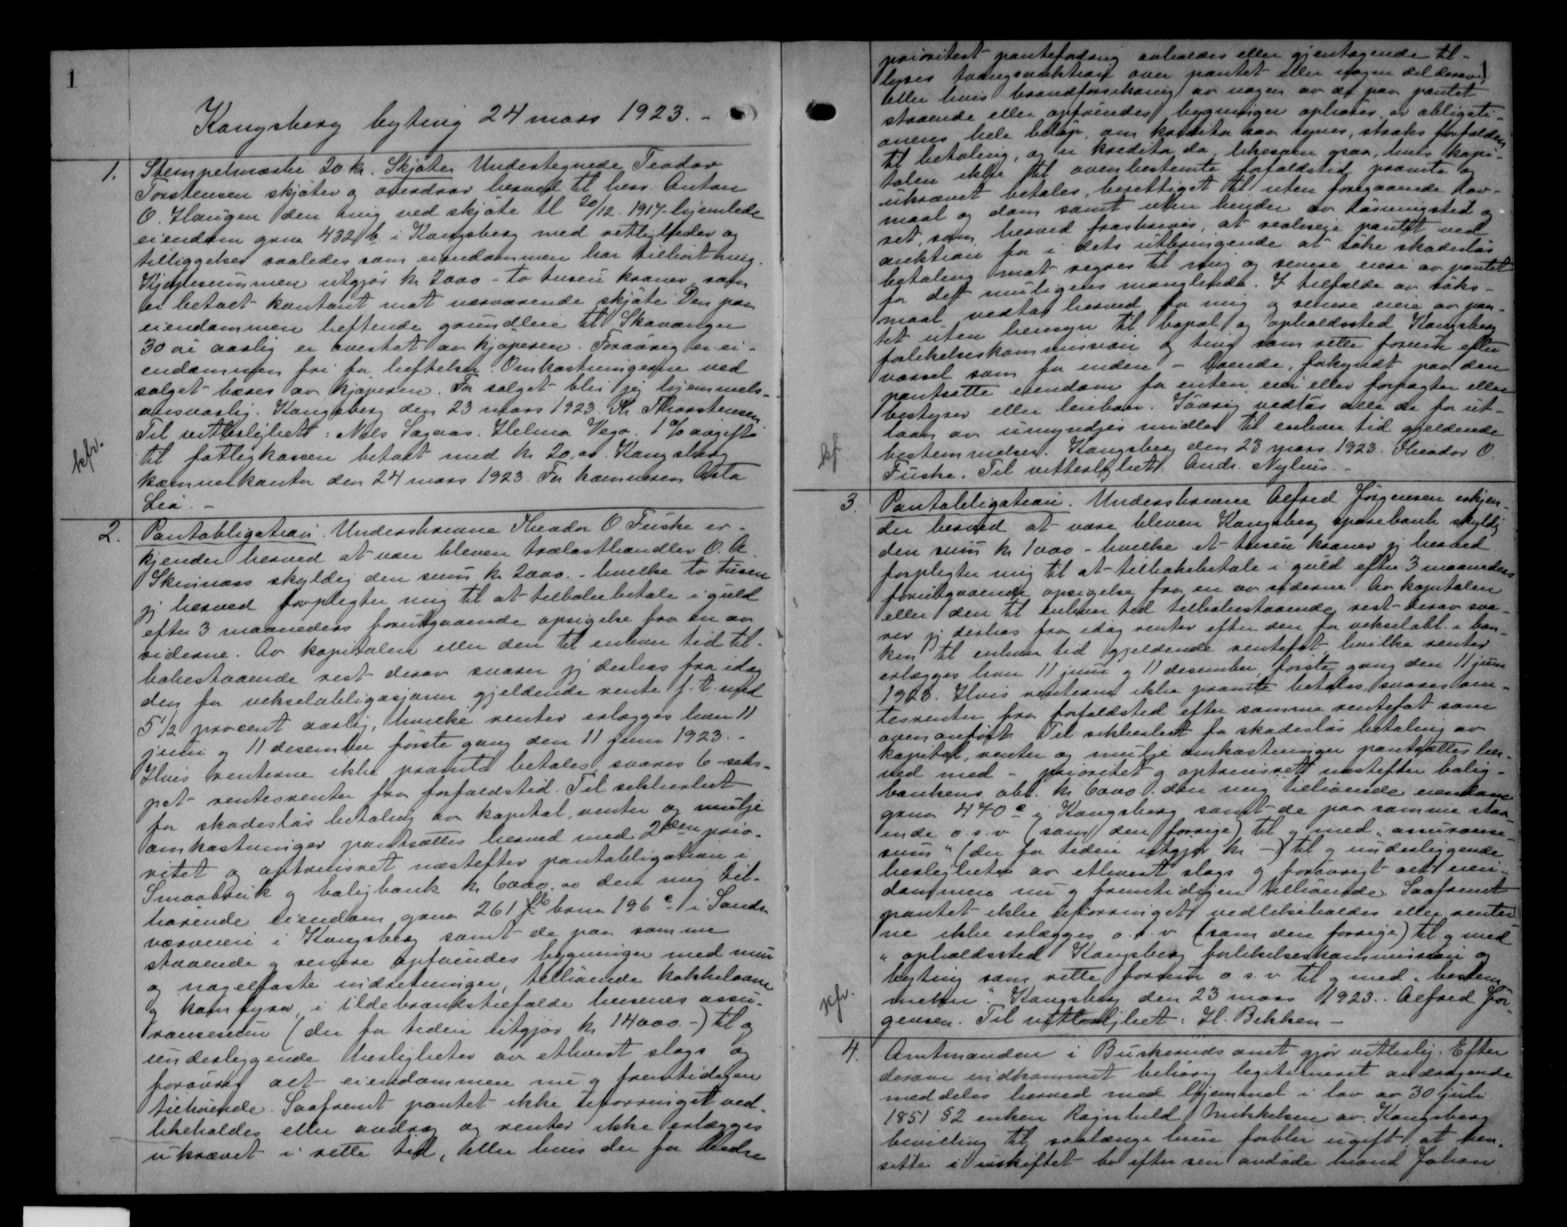 1
Kongsberg byting 24 mars 1923. -
1. Stempelmerke 20 kr. Skjøte. Undertegnede Teodor
Torstensen skjøter og overdrar herved til herr Anton
O. Haugen den mig ved skjøte tl 20/12. 1917 hjemlede
eiendom grnr 432 b i Kongsberg med rettigheder og
tilliggelser saaledes som eiendommen har tilhørt mig.
Kjøpesummen utgjør kr 2000 - to tusen kroner som
er betalt kontant mot nærværende skjøte. Den paa
eiendommen heftende grundleie til Skavanger
30 øre aarlig er overtat av kjøperen. Forøvrig er ei-
endommen fri for heftelser. Omkostningerne ved
salget bæres av kjøperen. For salget blir jeg hjemmels-
ansvarlig. Kongsberg den 23 mars 1923. Th. Thorstensen.
Til vitterlighet: Nels Sagaas. Helma Vego. 1% avgift
til fattigkassen betalt med kr 20,00. Kongsberg
kemnerkontor den 24 mars 1923. For kemneren Asta
Lia. -
kfr.
2. Pantobligation. Underskrevne Theodor O Fuske er-
kjender herved at være bleven trælasthandler O. A.
Skrivnæss skyldig den sum kr 2000. - hvilke to tusen
jeg herved forpligter mig til at tilbakebetale i guld
efter 3 maaneders forutgaaende opsigelse fra en av
siderne. Av kapitalen eller den til enhver tid til-
bakestaaende rest derav svarer jeg desless fra idag
den for vekselobligasjoner gjeldende rente f. t. med
5 1/2 procent aarlig, hvilke renter erlægges hver 11
juni og 11 desember første gang den 11 juni 1923. -
Hvis renterne ikke promte betales svares 6 - seks -
pct rentesrenter fra forfaldstid. Til sikkerhet
for skadesløs betaling av kapital, renter og mulige
omkostninger pantsættes herved med 2den prio-
ritet og optrinsret næstefter pantobligation i
Smaabruk og boligbank kr 6000.00 den mig til-
hørende eiendom grnr 261 b brnr 196 c i Sands-
værveien i Kongsberg samt de paa samme
staaende og senere opførendes bygninger med mur
og nagelfaste indretninger, tilhørende kakkelovne
og komfyrer, i ildebrandstilfælde husenes assu-
ransesum (der for tiden utgjør kr 14000 -) til og
underliggende herligheter av ethvert slags og
forøvrig alt eiendommen nu og fremtidigen
tilhørende. Saafremt pantet ikke uforringet ved-
likeholdes eller avdrag og renter ikke erlægges
ukrævet i rette tid, eller hvis der for bedre
1
prioritert pantefordring avholdes eller gjentagende til-
lyses tvangsauktion over pantet eller nogen del derav,
eller hvis brandforsikring av nogen av de paa pantet
staaende eller opførendes bygninger ophører, er obligati-
onens hele beløp, om kreditor saa synes, straks forfalden
til betaling, og er kreditor da, likesom ogsaa, hvis kapi-
talen ikke til ovenbestemte forfaldstid promte og
ukrævet betales, berettiget til uten foregaaende lov-
maal og dom samt uten hinder av løsningstid og
ret, som herved fraskrives, at realisere pantet ved
auktion for i dets utbringende at søke skadesløs
betaling mot regres til mig og senere eiere av pantet
for det muligens manglende. I tilfælde av søks-
maal vedtas herved for mig og senere eiere av pan-
tet uten hensyn til bopæl og opholdssted Kongsberg
forlikelseskommission og ting som rette forum efter
varsel som for inden - boende, forkyndt paa den
pantsatte eiendom for enten eier eller forpagter eller
bestyrer eller leieboer. Iøvrig vedtas alle de for ut-
laan av umyndiges midler til enhver tid gjeldende
bestemmelser. Kongsberg den 23 mars 1923. Theodor O.
Fuske. Til vitterlighet: Ands. Nyhus. -
kfr
3. Pantobligation. Underskrevne Alfred Jørgensen erkjen-
der herved at være bleven Kongsberg sparebank skyldig
den sum kr 1000 - hvilke et tusen kroner jeg herved
forpligter mig til at tilbakebetale i guld efter 3 maaneders
forutgaaende opsigelse fra en av siderne. Av kapitalen
eller den til enhver tid tilbakestaaende rest derav sva-
rer jeg desless fra idag renter efter den for veksellaan i ban-
ken til enhver tid gjeldende rentefot hvilke renter
erlægges hver 11 juni og 11 desember første gang den 11 juni
1923. Hvis renterne ikke promte betales svares ren-
tesrenter fra forfaldstid efter samme rentefot som
ovenanført. Til sikkerhet for skadesløs betaling av
kapital, renter og mulige omkostninger pantsættes her-
ved med - prioritet og optrinsrett næstefter bolig-
bankens obl. kr 6000 den mig tilhørende eiendom
grnr 470 c i Kongsberg samt de paa samme staa-
ende o. s. v (som den forrige) til og med "assuranse-
sum" (der for tiden utgjør kr -) til og underliggende
herligheter av ethvert slags og forøvrigt alt eien-
dommen nu og fremtidigen tilhørende. Saafremt
pantet ikke uforringet vedlikeholdes eller renter
ne ikke erlægges o. s. v (som den forrige) til og med
"opholdssted Kongsberg forlikelseskommission og
byting som rette forum o s. v til og med "bestem
melser." Kongsberg den 23 mars 1923. Alfred Jør-
gensen. Til vitterlighet: H. Bekken -
kfr.
4. Amtmanden i Buskeruds amt gjør vitterlig: Efter
derom indkommet behørig legitimeret andragende
meddeles herved med hjemmel i lov av 30 juli
1851 § 2 enken Ragnhild Mikkelsen av Kongsberg
bevilling til, saalænge hun forblir ugift, at hen-
sitte i uskiftet bo efter sin avdøde mand Johan